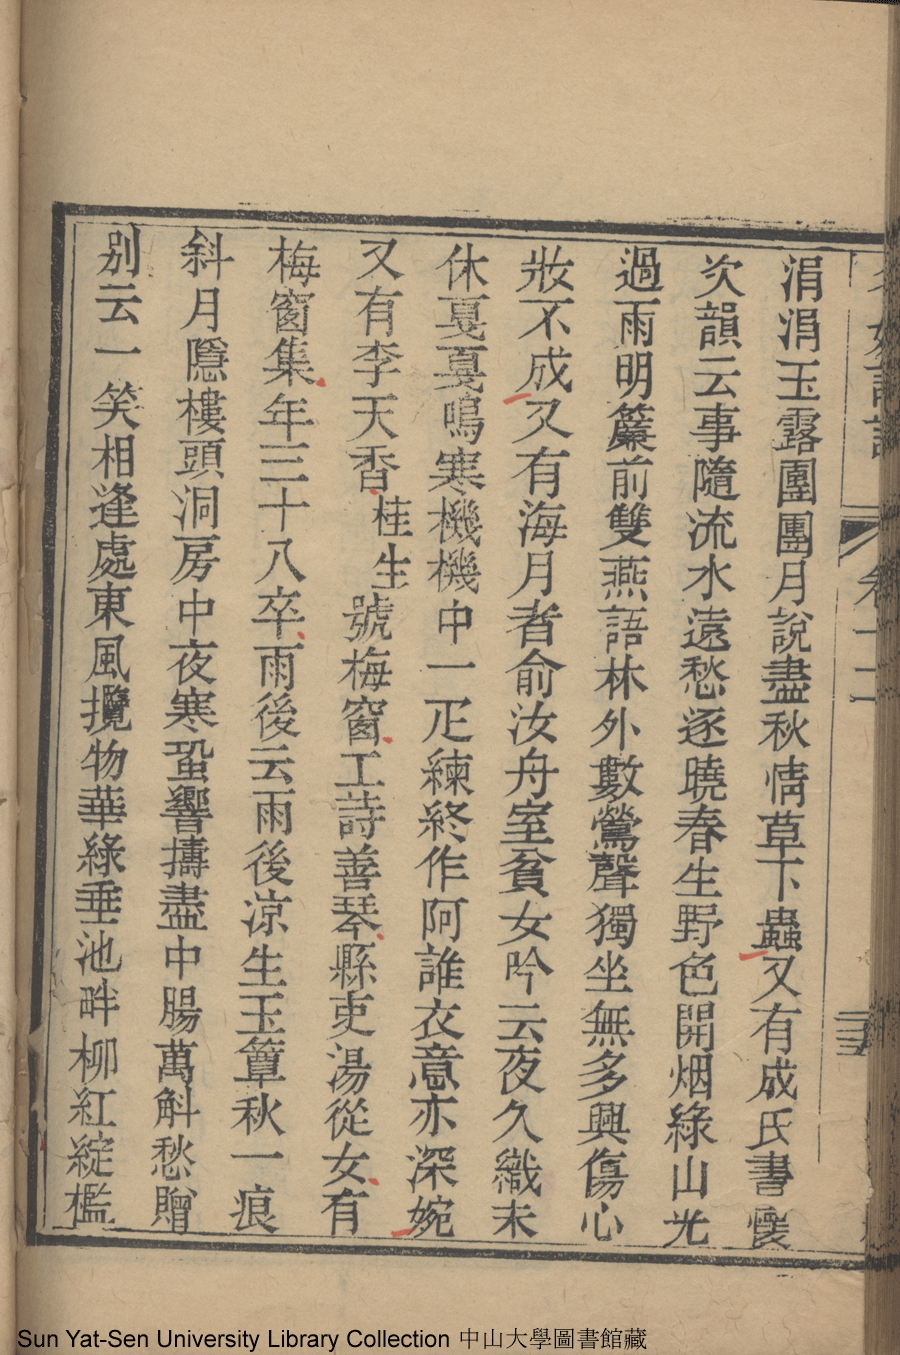 涓涓玉露團團月說盡秋情草下蟲又有成氏書懷
次韻云事隨流水遠愁逐曉春生野色開烟綠山光
過雨明簾前雙燕語林外數鶯聲獨坐無多興傷心
妝不成又有海月者俞汝舟室貧女吟云夜久織未
休戛戛鳴寒機機中一疋練終作阿誰衣意亦深婉
又有李天香桂生號梅窗工詩善琴縣吏湯從女有
梅窗集年三十八卒雨後云雨後涼生玉簟秋一痕
斜月隱樓頭洞房中夜寒蛩響擣盡中腸萬斛愁贈
別云一笑相逢處東風攬物華綠垂池畔柳紅綻檻
Sun Yat-Sen University Library Collection 中山大學圖書館藏